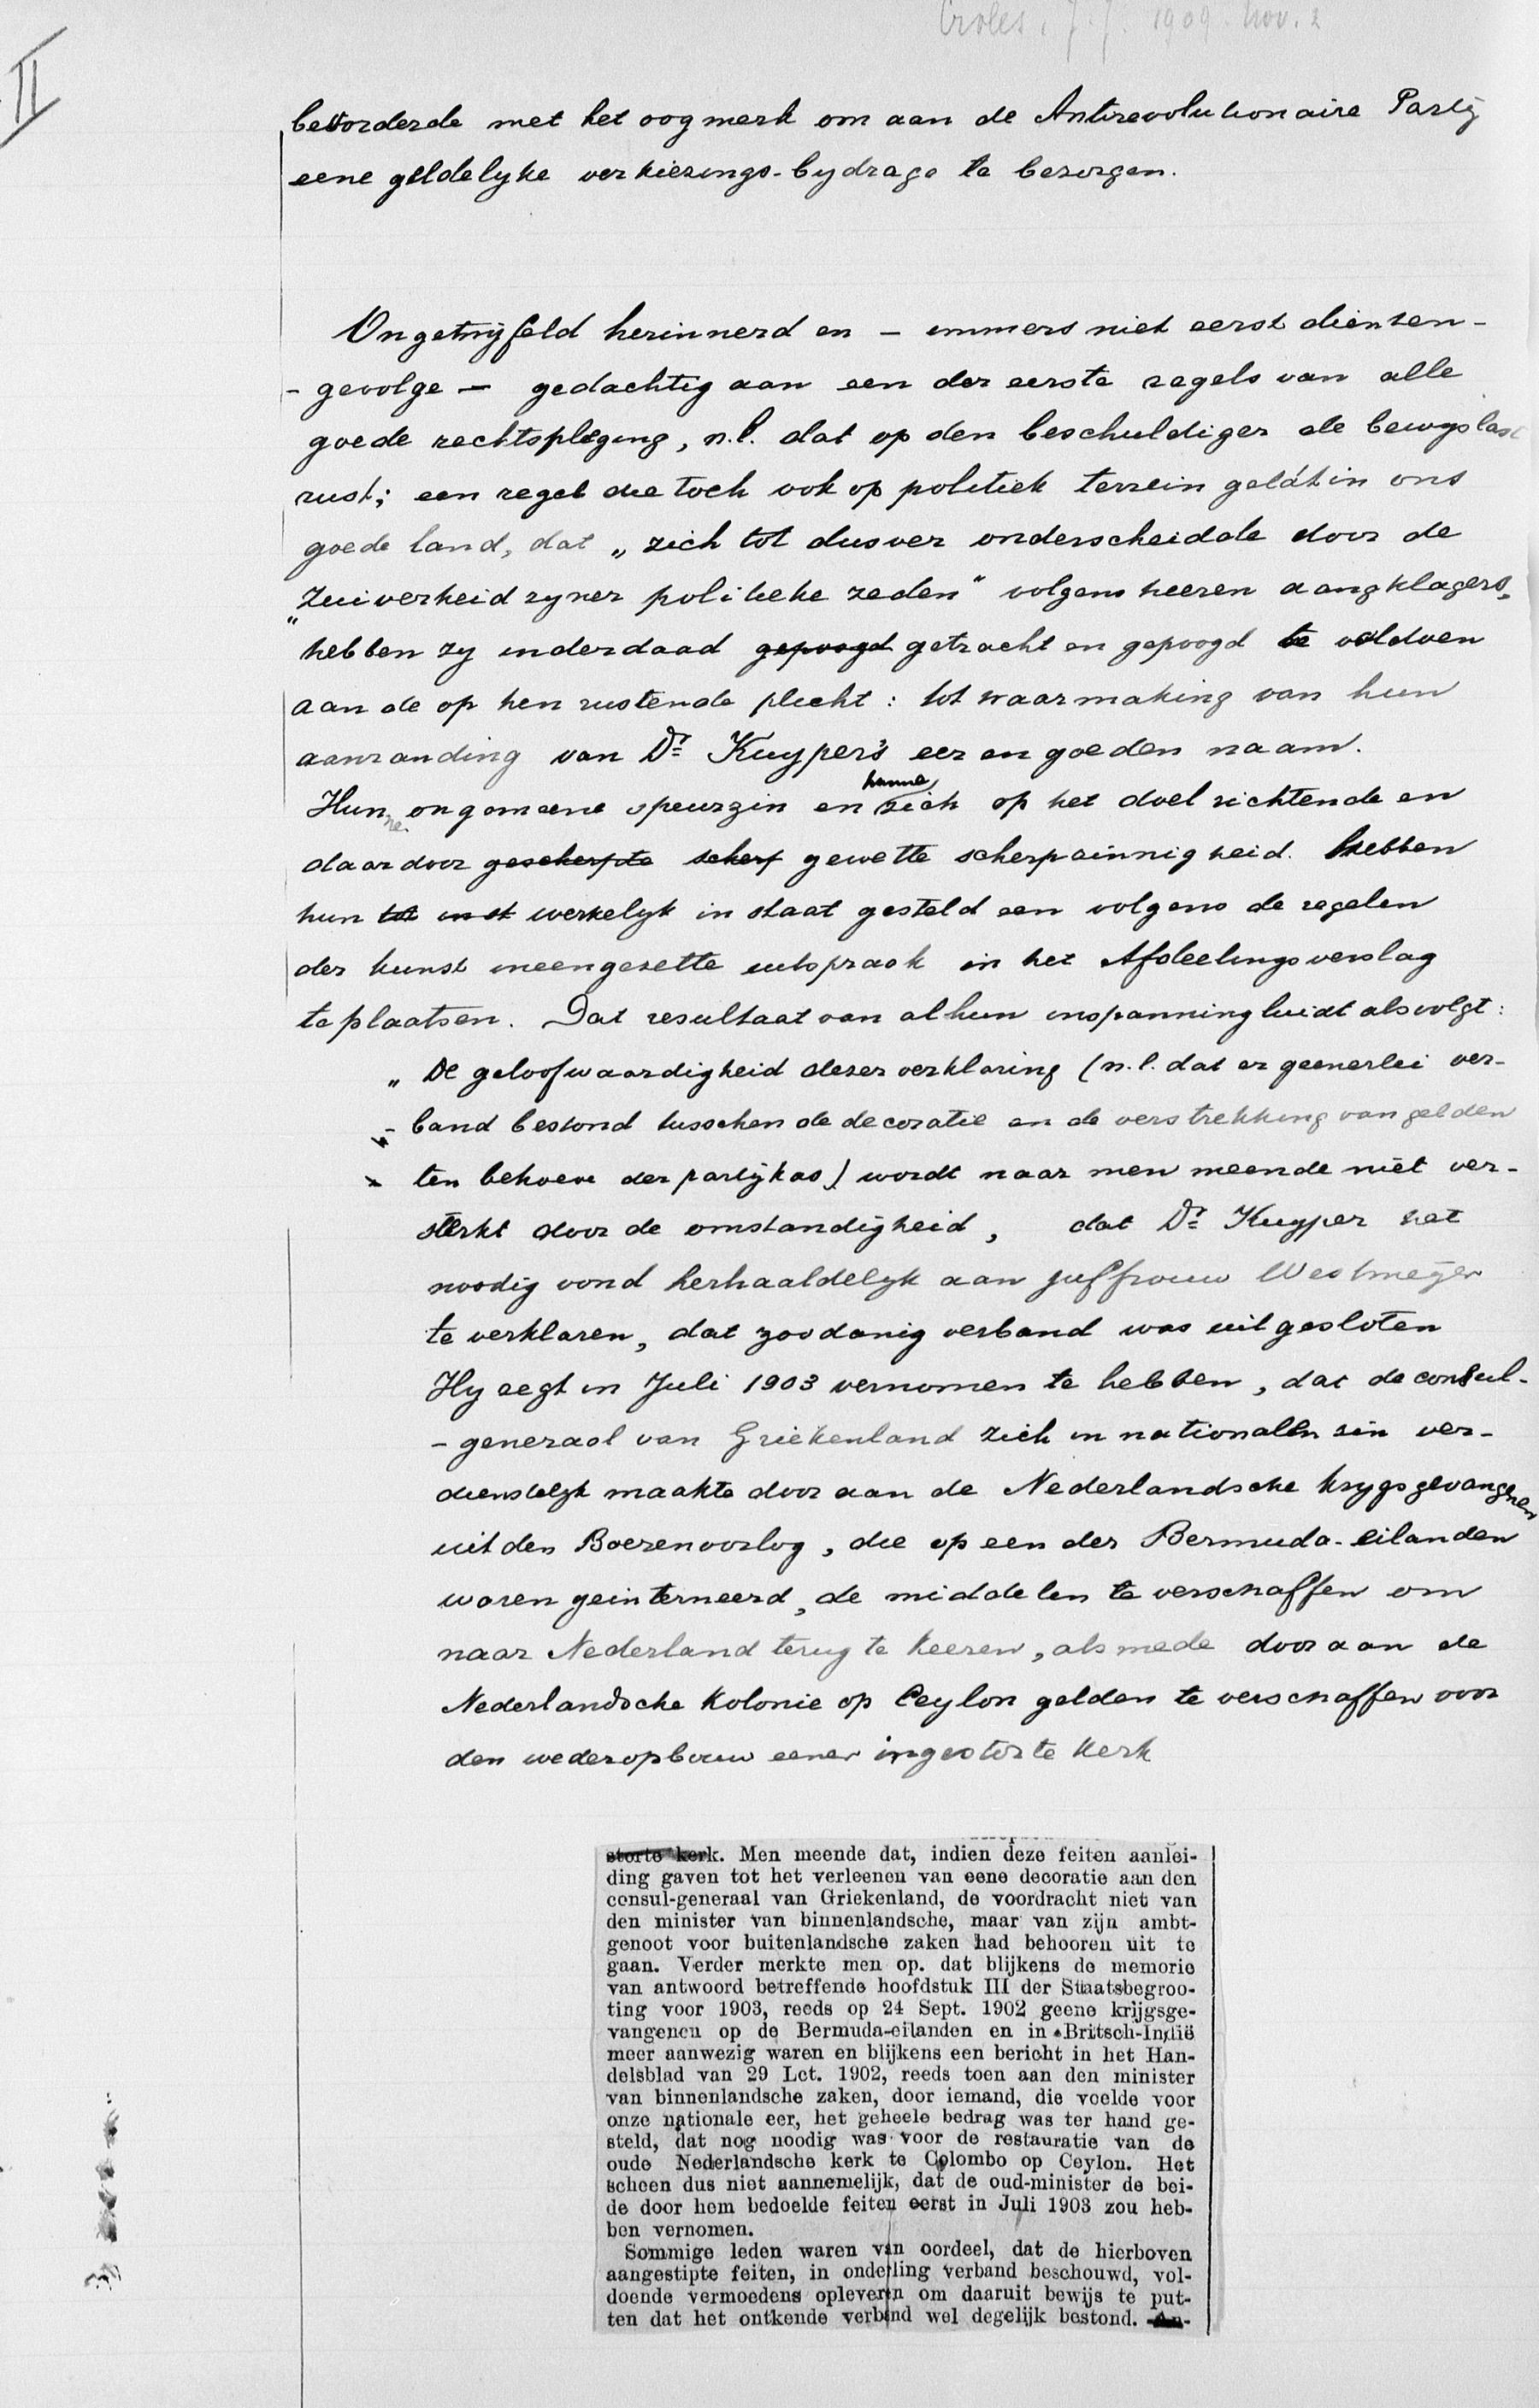 Croles, J. J. 1909. Nov. 2
II
bevorderde met het oogmerk om aan de Antirevolutionaire Partij
eene geldelyke verkiezings-bydrage te bezorgen.
Ongetwijfeld herinnerd en — immers niet eerst dienten-
- gevolge — gedachtig aan een der eerste regels van alle
goede rechtspleging, n.l. dat op den beschuldiger de bewyslast
rust; een regel die toch ook op politiek terrein geldt in ons
goede land, dat „zich tot dusver onderscheidde door de
„zuiverheid zyner politieke zeden" volgens heeren aangklagers,
hebben zy inderdaad gepoogd getracht en gepoogd te voldoen
aan de op hen rustende plicht: tot waarmaking van hun
aanranding van Dr Kuyper's eer en goeden naam.
Hunne ongemeene speurzin en hunne zich op het doel richtende en
daardoor gescherpte scherp gewette scherpzinnigheid hebben
hun tot in st werkelyk in staat gesteld een volgens de regelen
der kunst ineengezette uitspraak in het Afdeelingsverslag
te plaatsen. Dat resultaat van al hun inspanning luidt als volgt:
„De geloofwaardigheid dezer verklaring (n.l. dat er geenerlei ver-
- band bestond tusschen de decoratie en de verstrekking van gelden
ten behoeve der partijkas) wordt naar men meende niet ver-
sterkt door de omstandigheid, dat Dr Kuyper het
noodig vond herhaaldelyk aan juffrouw Westmeijer
te verklaren, dat zoodanig verband was uitgesloten
Hy zegt in Juli 1903 vernomen te hebben, dat de consul-
- generaal van Griekenland zich in nationalen zin ver-
dienstelyk maakte door aan de Nederlandsche krygsgevangenen
uit den Boerenoorlog, die op een der Bermuda-eilanden
waren geinterneerd, de middelen te verschaffen om
naar Nederland terug te keeren, alsmede door aan de
Nederlandsche Kolonie op Ceylon gelden te verschaffen voor
den wederopbouw eener ingestorte kerk
storte kerk. Men meende dat, indien deze feiten aanlei-
ding gaven tot het verleenen van eene decoratie aan den
consul-generaal van Griekenland, de voordracht niet van
den minister van binnenlandsche, maar van zijn ambt-
genoot voor buitenlandsche zaken had behooren uit te
gaan. Verder merkte men op. dat blijkens de memorie
van antwoord betreffende hoofdstuk III der Staatsbegroo-
ting voor 1903, reeds op 24 Sept. 1902 geene krijgsge-
vangenen op de Bermuda-eilanden en in Britsch-Indië
meer aanwezig waren en blijkens een bericht in het Han-
delsblad van 29 Lct. 1902, reeds toen aan den minister
van binnenlandsche zaken, door iemand, die voelde voor
onze nationale eer, het geheele bedrag was ter hand ge-
steld, dat nog noodig was voor de restauratie van de
oude Nederlandsche kerk te Colombo op Ceylon. Het
scheen dus niet aannemelijk, dat de oud-minister de bei-
de door hem bedoelde feiten eerst in Juli 1903 zou heb-
ben vernomen.
Sommige leden waren van oordeel, dat de hierboven
aangestipte feiten, in onderling verband beschouwd, vol-
doende vermoedens opleveren om daaruit bewijs te put-
ten dat het ontkende verband wel degelijk bestond. An-